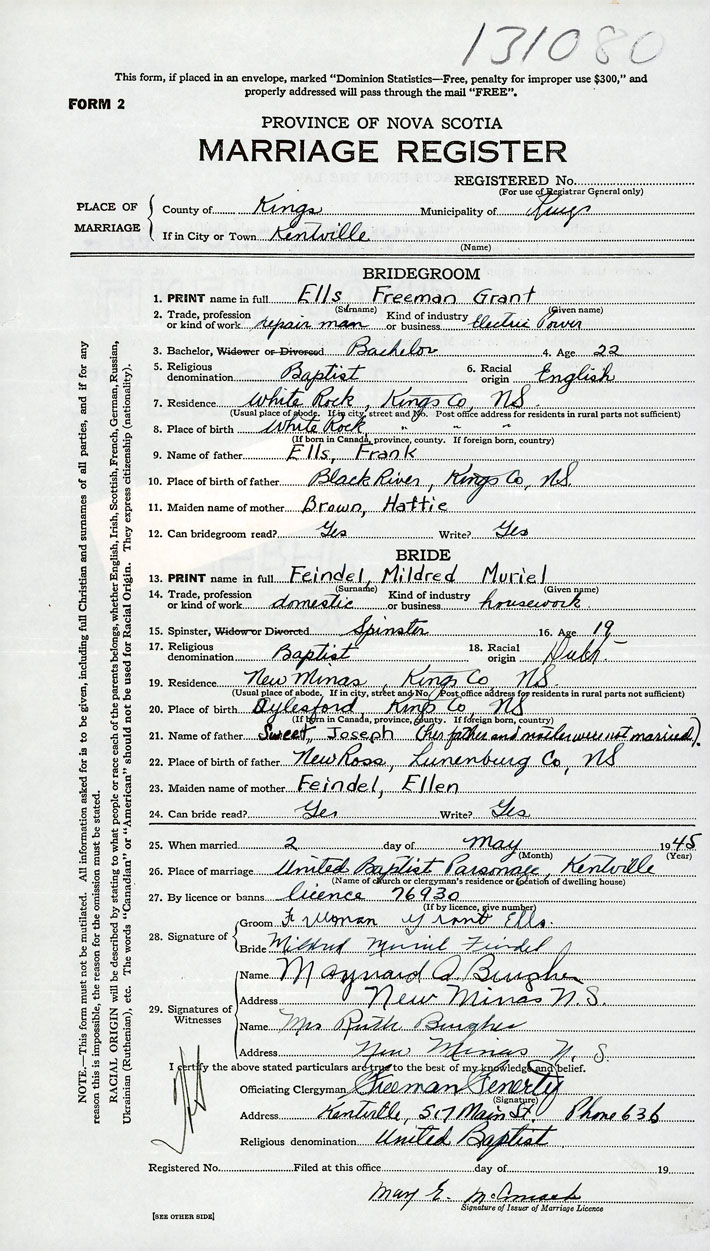 131080
This form, if placed in an envelope, marked "Dominion Statistics—Free, penalty for improper use $300," and
properly addressed will pass through the mail "FREE".
FORM 2
PROVINCE OF NOVA SCOTIA
MARRIAGE REGISTER
REGISTERED No.
(For use of Registrar General only)
PLACE OF MARRIAGE
County of Kings Municipality of Kings
If in City or Town Kentville
(Name)
BRIDEGROOM
1. PRINT name in full Ells, Freeman Grant
(Surname) (Given name)
2. Trade, profession or kind of work repair man Kind of industry or business Electric Power
3. Bachelor, Widower or Divorced Bachelor 4. Age 22
5. Religious denomination Baptist 6. Racial origin English
7. Residence White Rock, Kings Co, NS.
(Usual place of abode. If in city, street and No. Post office address for residents in rural parts not sufficient)
8. Place of birth White Rock, " " "
(If born in Canada, province, county. If foreign born, country)
9. Name of father Ells, Frank
10. Place of birth of father Black River, Kings Co, NS.
11. Maiden name of mother Brown, Hattie
12. Can bridegroom read? Yes Write? Yes
BRIDE
13. PRINT name in full Feindel, Mildred Muriel
(Surname) (Given name)
14. Trade, profession or kind of work domestic Kind of industry or business housework
15. Spinster, Widow or Divorced Spinster 16. Age 19
17. Religious denomination Baptist 18. Racial origin Dutch
19. Residence New Minas, Kings Co, NS
(Usual place of abode. If in city, street and No. Post office address for residents in rural parts not sufficient)
20. Place of birth Aylesford Kings Co, NS
(If born in Canada, province, county. If foreign born, country)
21. Name of father Sweet, Joseph (her father and mother were not married).
22. Place of birth of father New Ross, Lunenburg Co, NS
23. Maiden name of mother Feindel, Ellen
24. Can bride read? Yes Write? Yes
25. When married 2 day of May 1945
(Month) (Year)
26. Place of marriage United Baptist Parsonage, Kentville
(Name of church or clergyman's residence or location of dwelling house)
27. By licence or banns licence 76930
(If by licence, give number)
28. Signature of
Groom Freeman Grant Ells.
Bride Mildred Muriel Feindel
29. Signatures of Witnesses
Name Maynard
Address New Minas N.S.
Name Mrs Ruth
Address New Minas N. S.
I certify the above stated particulars are true to the best of my knowledge and belief.
Officiating Clergyman Freeman Fenerty
(Signature)
Address Kentville, 517 Main St. Phone 636
Religious denomination United Baptist
Registered No. Filed at this office day of 19
Mary E. McCormack
Signature of Issuer of Marriage Licence
[SEE OTHER SIDE]
NOTE.—This form must not be mutilated. All information asked for is to be given, including full Christian and surnames of all parties, and if for any
reason this is impossible, the reason for the omission must be stated.
RACIAL ORIGIN will be described by stating to what people or race each of the parents belongs, whether English, Irish, Scottish, French, German, Russian,
Ukrainian (Ruthenian), etc. The words "Canadian" or "American" should not be used for Racial Origin. They express citizenship (nationality).